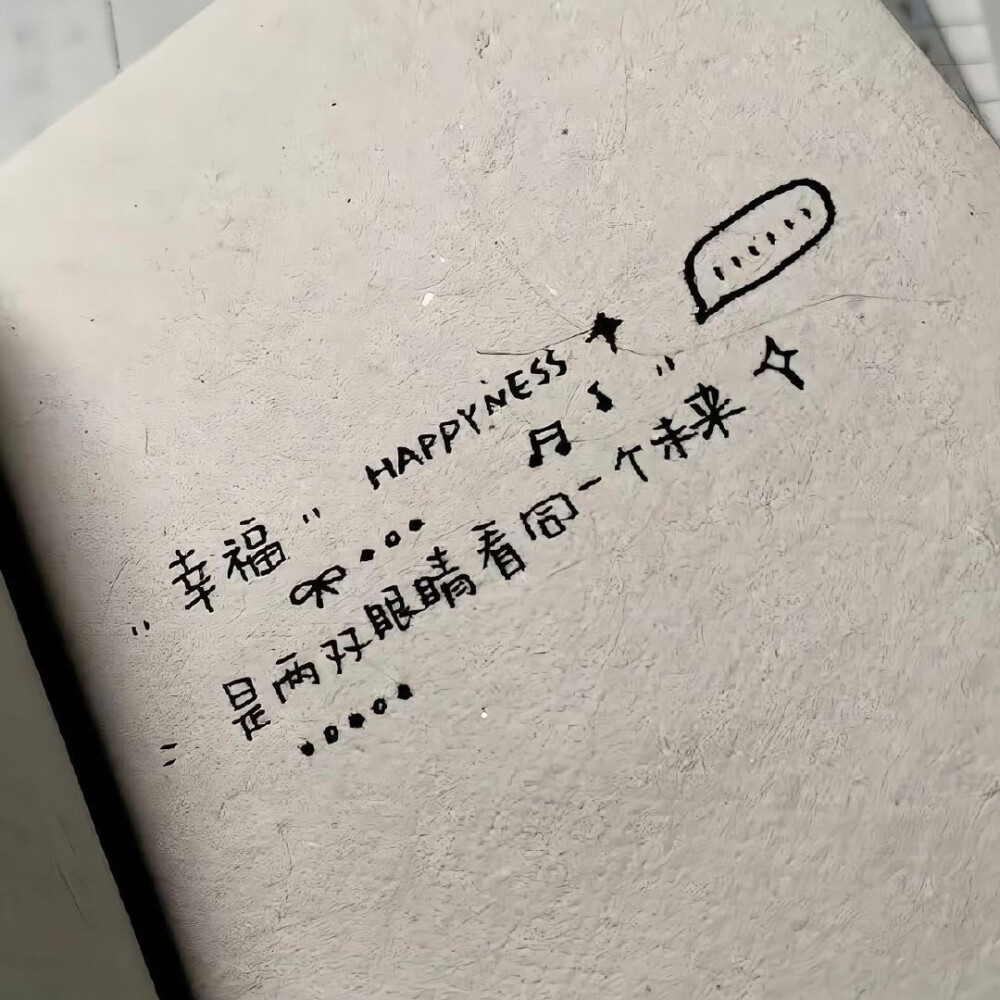 HAPPYNESS
"幸福"
"是两双眼睛看同一个未来"